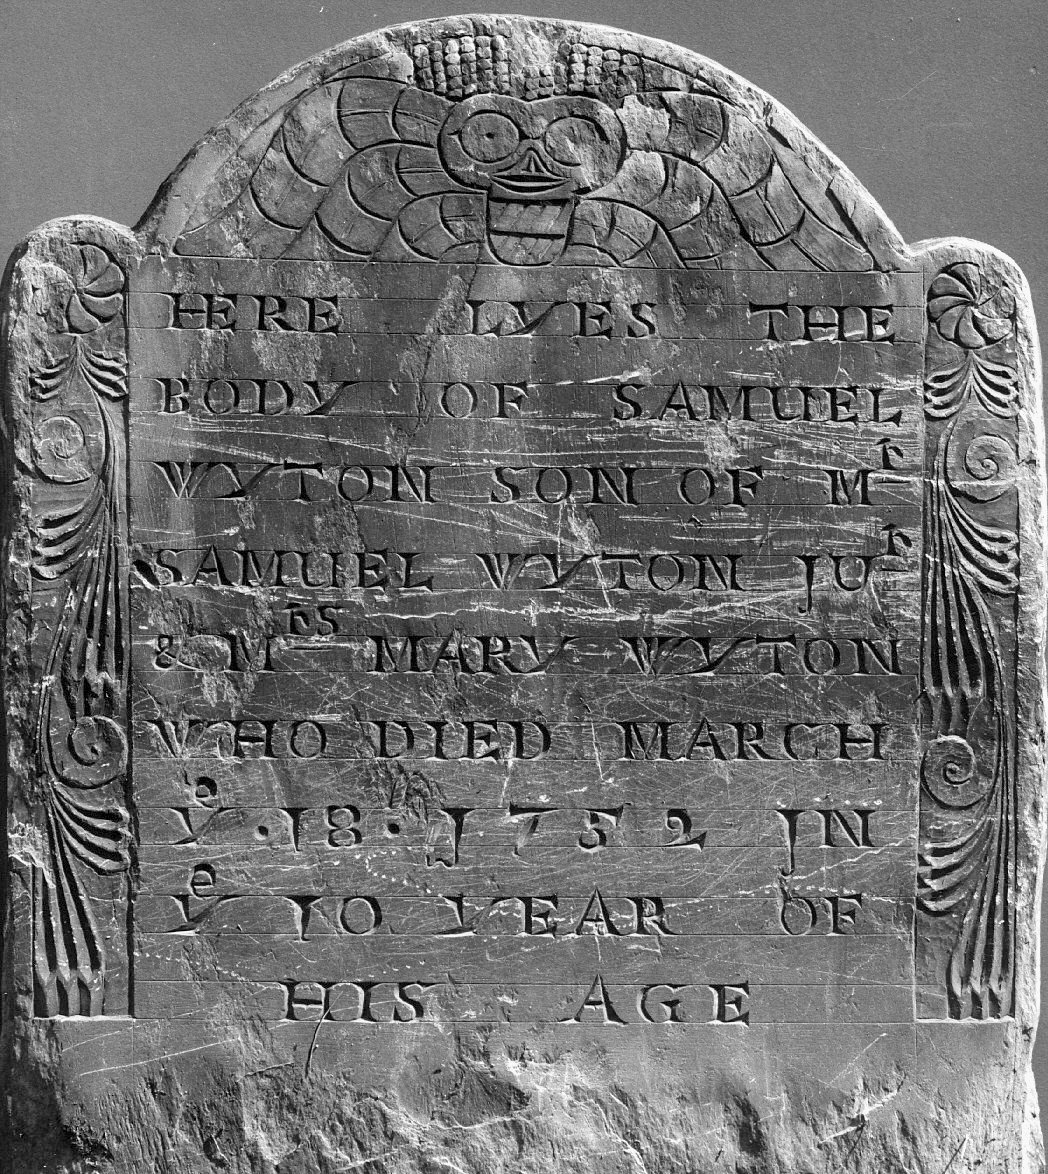 HERE LYES THE
BODY OF SAMUEL
WYTON SON OF Mʳ
SAMUEL WYTON JUʳ
& Mʳˢ MARY WYTON
WHO DIED MARCH
Yᵉ · 18 · J 7 5 2 JN
Yᵉ 10 YEAR OF
HIS AGE